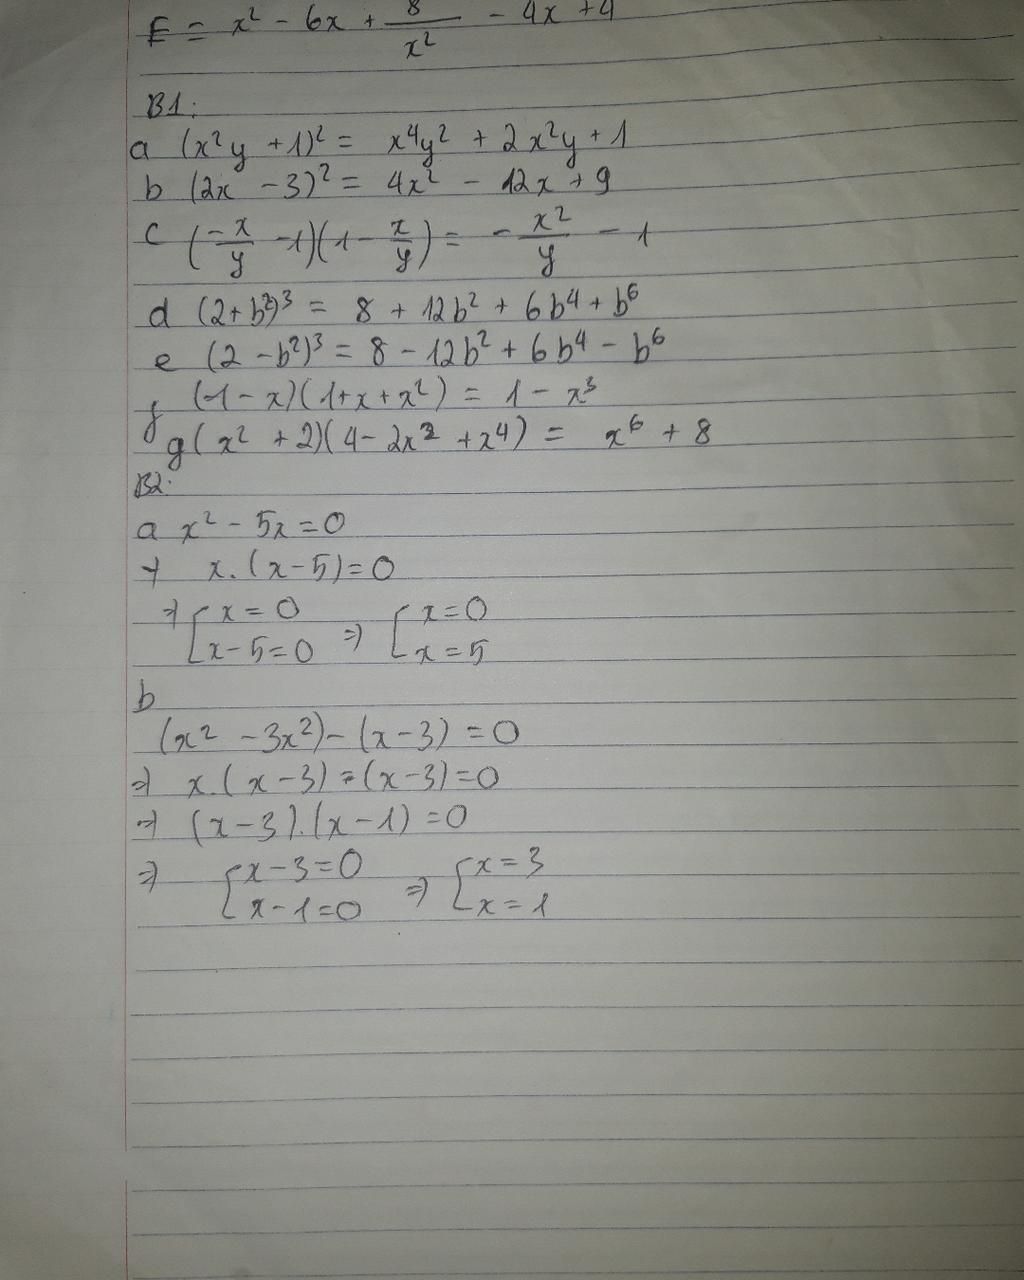 E = x² - 6x + 8/x² - 4x + 4
B1:
a (x²y + 1)² = x⁴y² + 2x²y + 1
b (2x - 3)² = 4x² - 12x + 9
c (-x/y - 1)(1 - x/y) = - x²/y - 1
d (2 + b²)³ = 8 + 12b² + 6b⁴ + b⁶
e (2 - b²)³ = 8 - 12b² + 6b⁴ - b⁶
f (-1 - x)(1 + x + x²) = 1 - x³
g (x² + 2)(4 - 2x² + x⁴) = x⁶ + 8
B2:
a x² - 5x = 0
→ x.(x - 5) = 0
⇒ [x = 0 ⇒ [x = 0
[x - 5 = 0 [x = 5
b
(x² - 3x²) - (x - 3) = 0
⇒ x.(x - 3) - (x - 3) = 0
⇒ (x - 3).(x - 1) = 0
⇒ [x - 3 = 0 ⇒ [x = 3
[x - 1 = 0 [x = 1